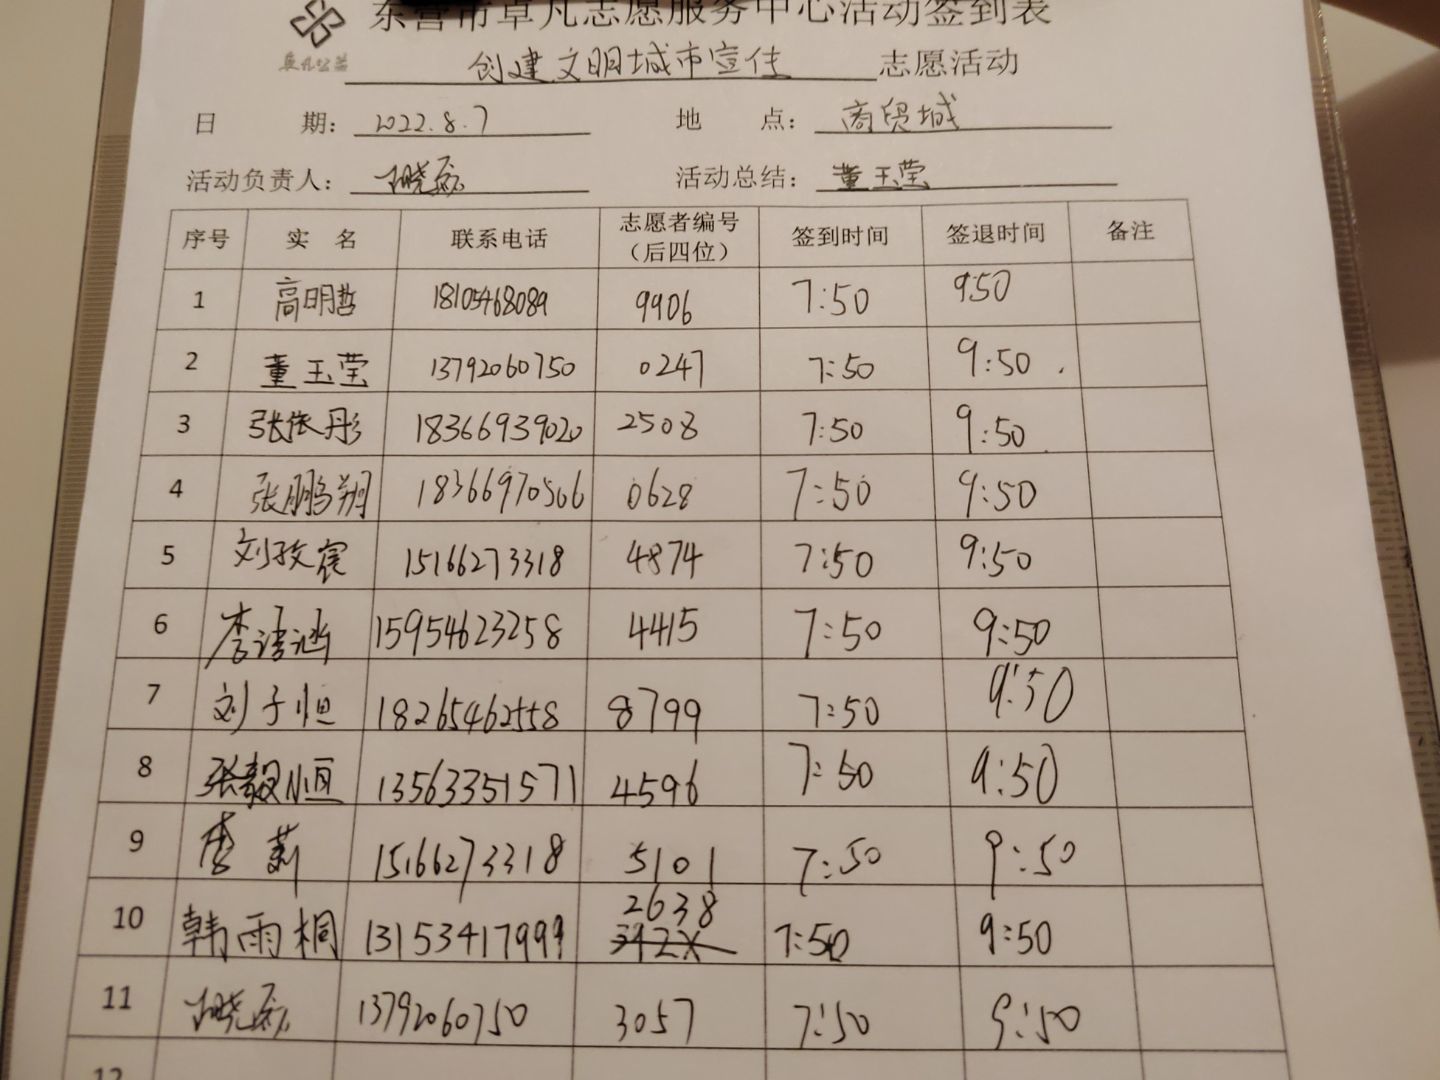 东营市卓凡志愿服务中心活动签到表
卓凡公益
创建文明城市宣传 志愿活动
日 期： 2022.8.7 地 点： 商贸城
活动负责人： 活动总结： 董玉莹
序号 实 名 联系电话 志愿者编号（后四位） 签到时间 签退时间 备注
1 高明哲 18105468089 9906 7:50 9:50
2 董玉莹 13792060750 0247 7:50 9:50
3 张依彤 18366939020 2508 7:50 9:50
4 张鹏翔 18366970506 0628 7:50 9:50
5 刘孜宸 15166273318 4874 7:50 9:50
6 李诗涵 15954623258 4415 7:50 9:50
7 刘子恒 18265462558 8799 7:50 9:50
8 张毅恒 13563351571 4596 7:50 9:50
9 李莉 15166273318 5101 7:50 9:50
10 韩雨桐 13153417999 2638 7:50 9:50
11 13792060750 3057 7:50 9:50
12